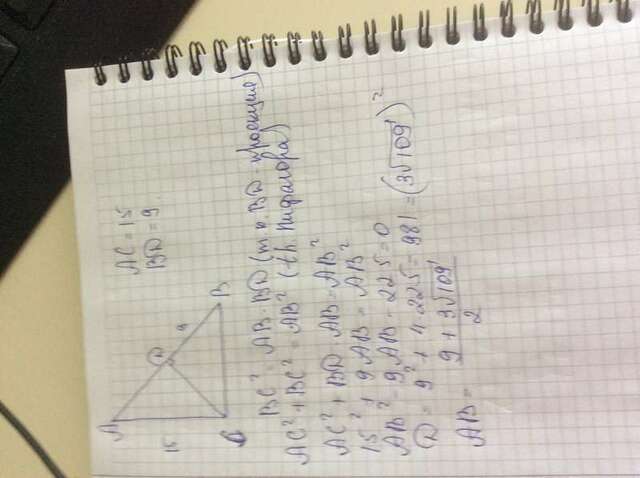 AC = 15
BD = 9.
A
D
9
15
C
B
BC² = AB · BD (т.к. BD - проекция)
AC² + BC² = AB² (th. Пифагора)
AC² + BD · AB = AB²
15² + 9AB = AB²
AB² - 9AB - 225 = 0
D = 9² + 4·225 = 981 = (3√109)²
AB = 9 + 3√109 / 2